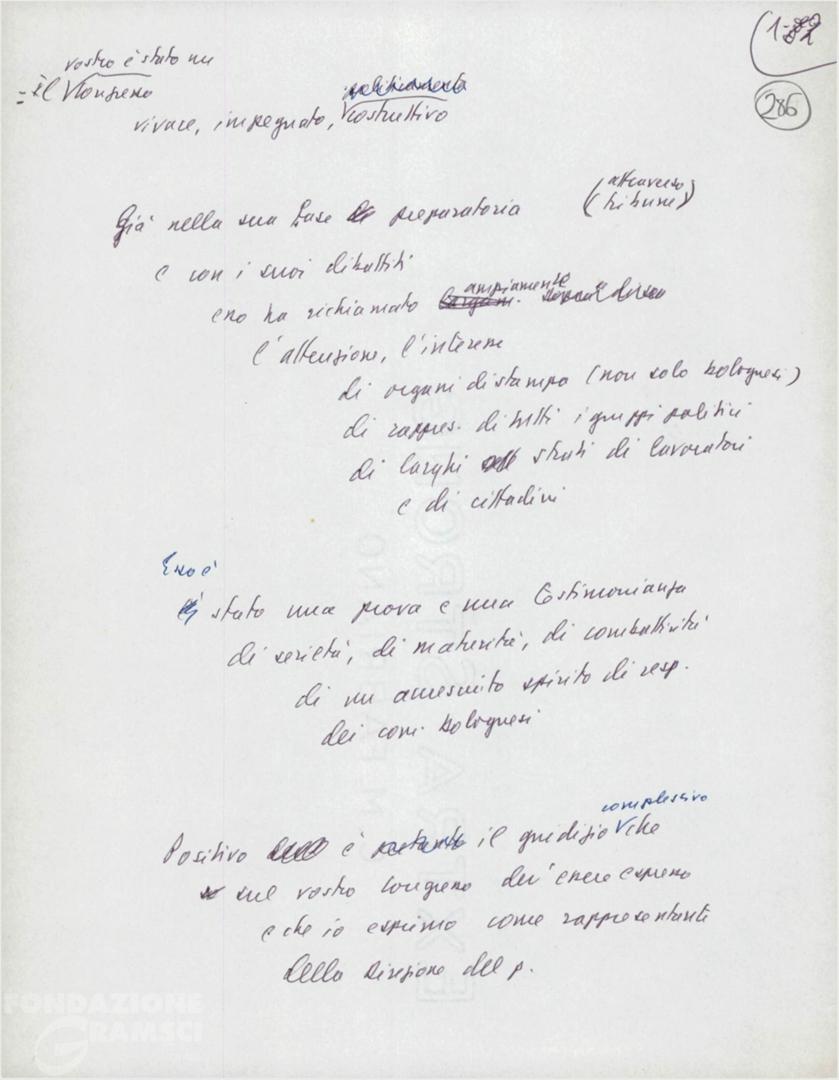 286
vostro è stato un
= Il Congresso
vivace, impegnato, costruttivo
(attraverso
(tribune)
Già nella sua fase preparatoria
e con i suoi dibattiti
esso ha richiamato ampiamente
l'attenzione, l'interesse
di organi di stampa (non solo bolognesi)
di rappres. di tutti i gruppi politici
di larghi strati di lavoratori
e di cittadini
Esso è
stato una prova e una testimonianza
di serietà, di maturità, di combattività
di un accresciuto spirito di resp.
dei com. bolognesi
complessivo
Positivo è il giudizio che
sul vostro Congresso dev'essere espresso
e che io esprimo come rappresentante
della Direzione del p.
FONDAZIONE
GRAMSCI